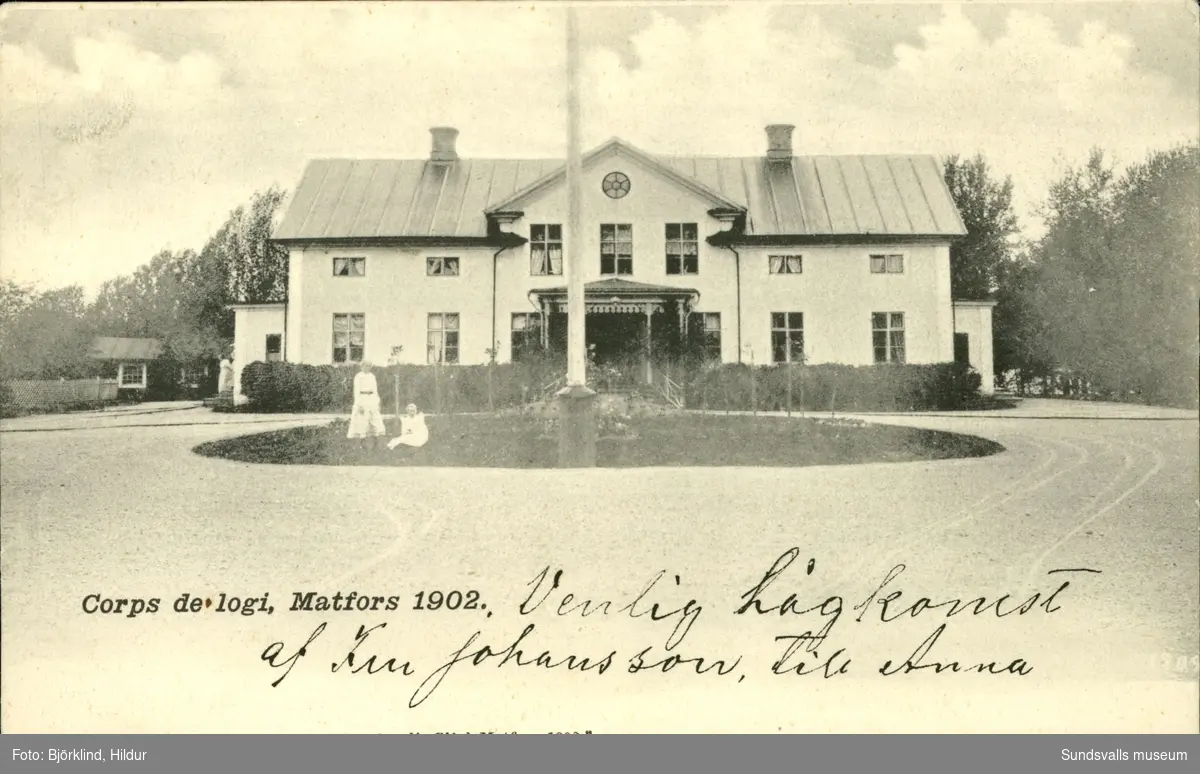 Corps de logi, Matfors 1902., Venlig hågkomst
af Fru Johansson, till Anna
Foto: Björklind, Hildur
Sundsvalls museum